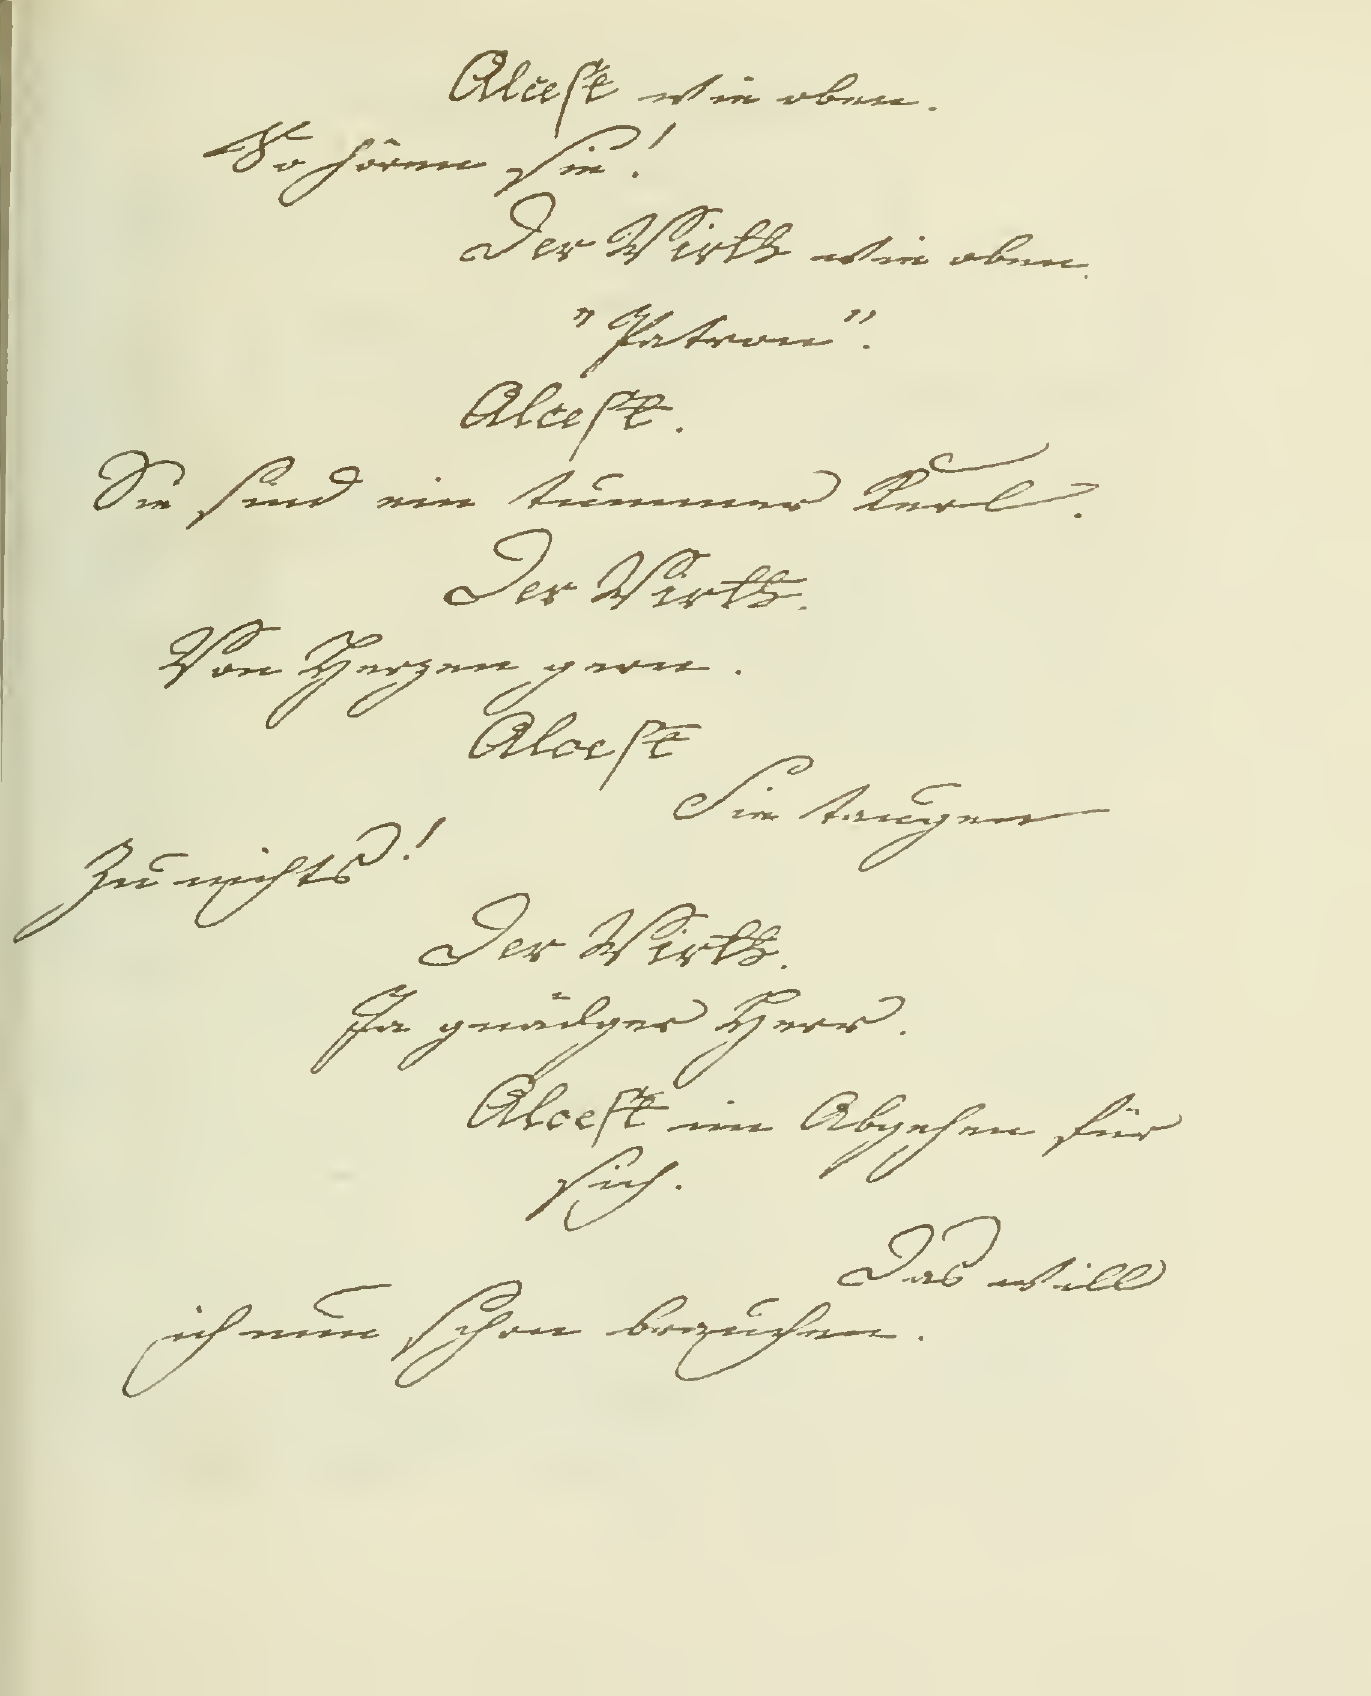 Alcest wie oben.
So hören sie!
Der Wirth wie oben.
"Patron".
Alcest.
Sie sind ein tummer Kerl.
Der Wirth.
Von Herzen gern.
Alcest
Sie taugen
zu nichts!
Der Wirth.
Ja gnädger Herr.
Alcest im Abgehen für
sich.
Das will
ich nun schon brauchen.